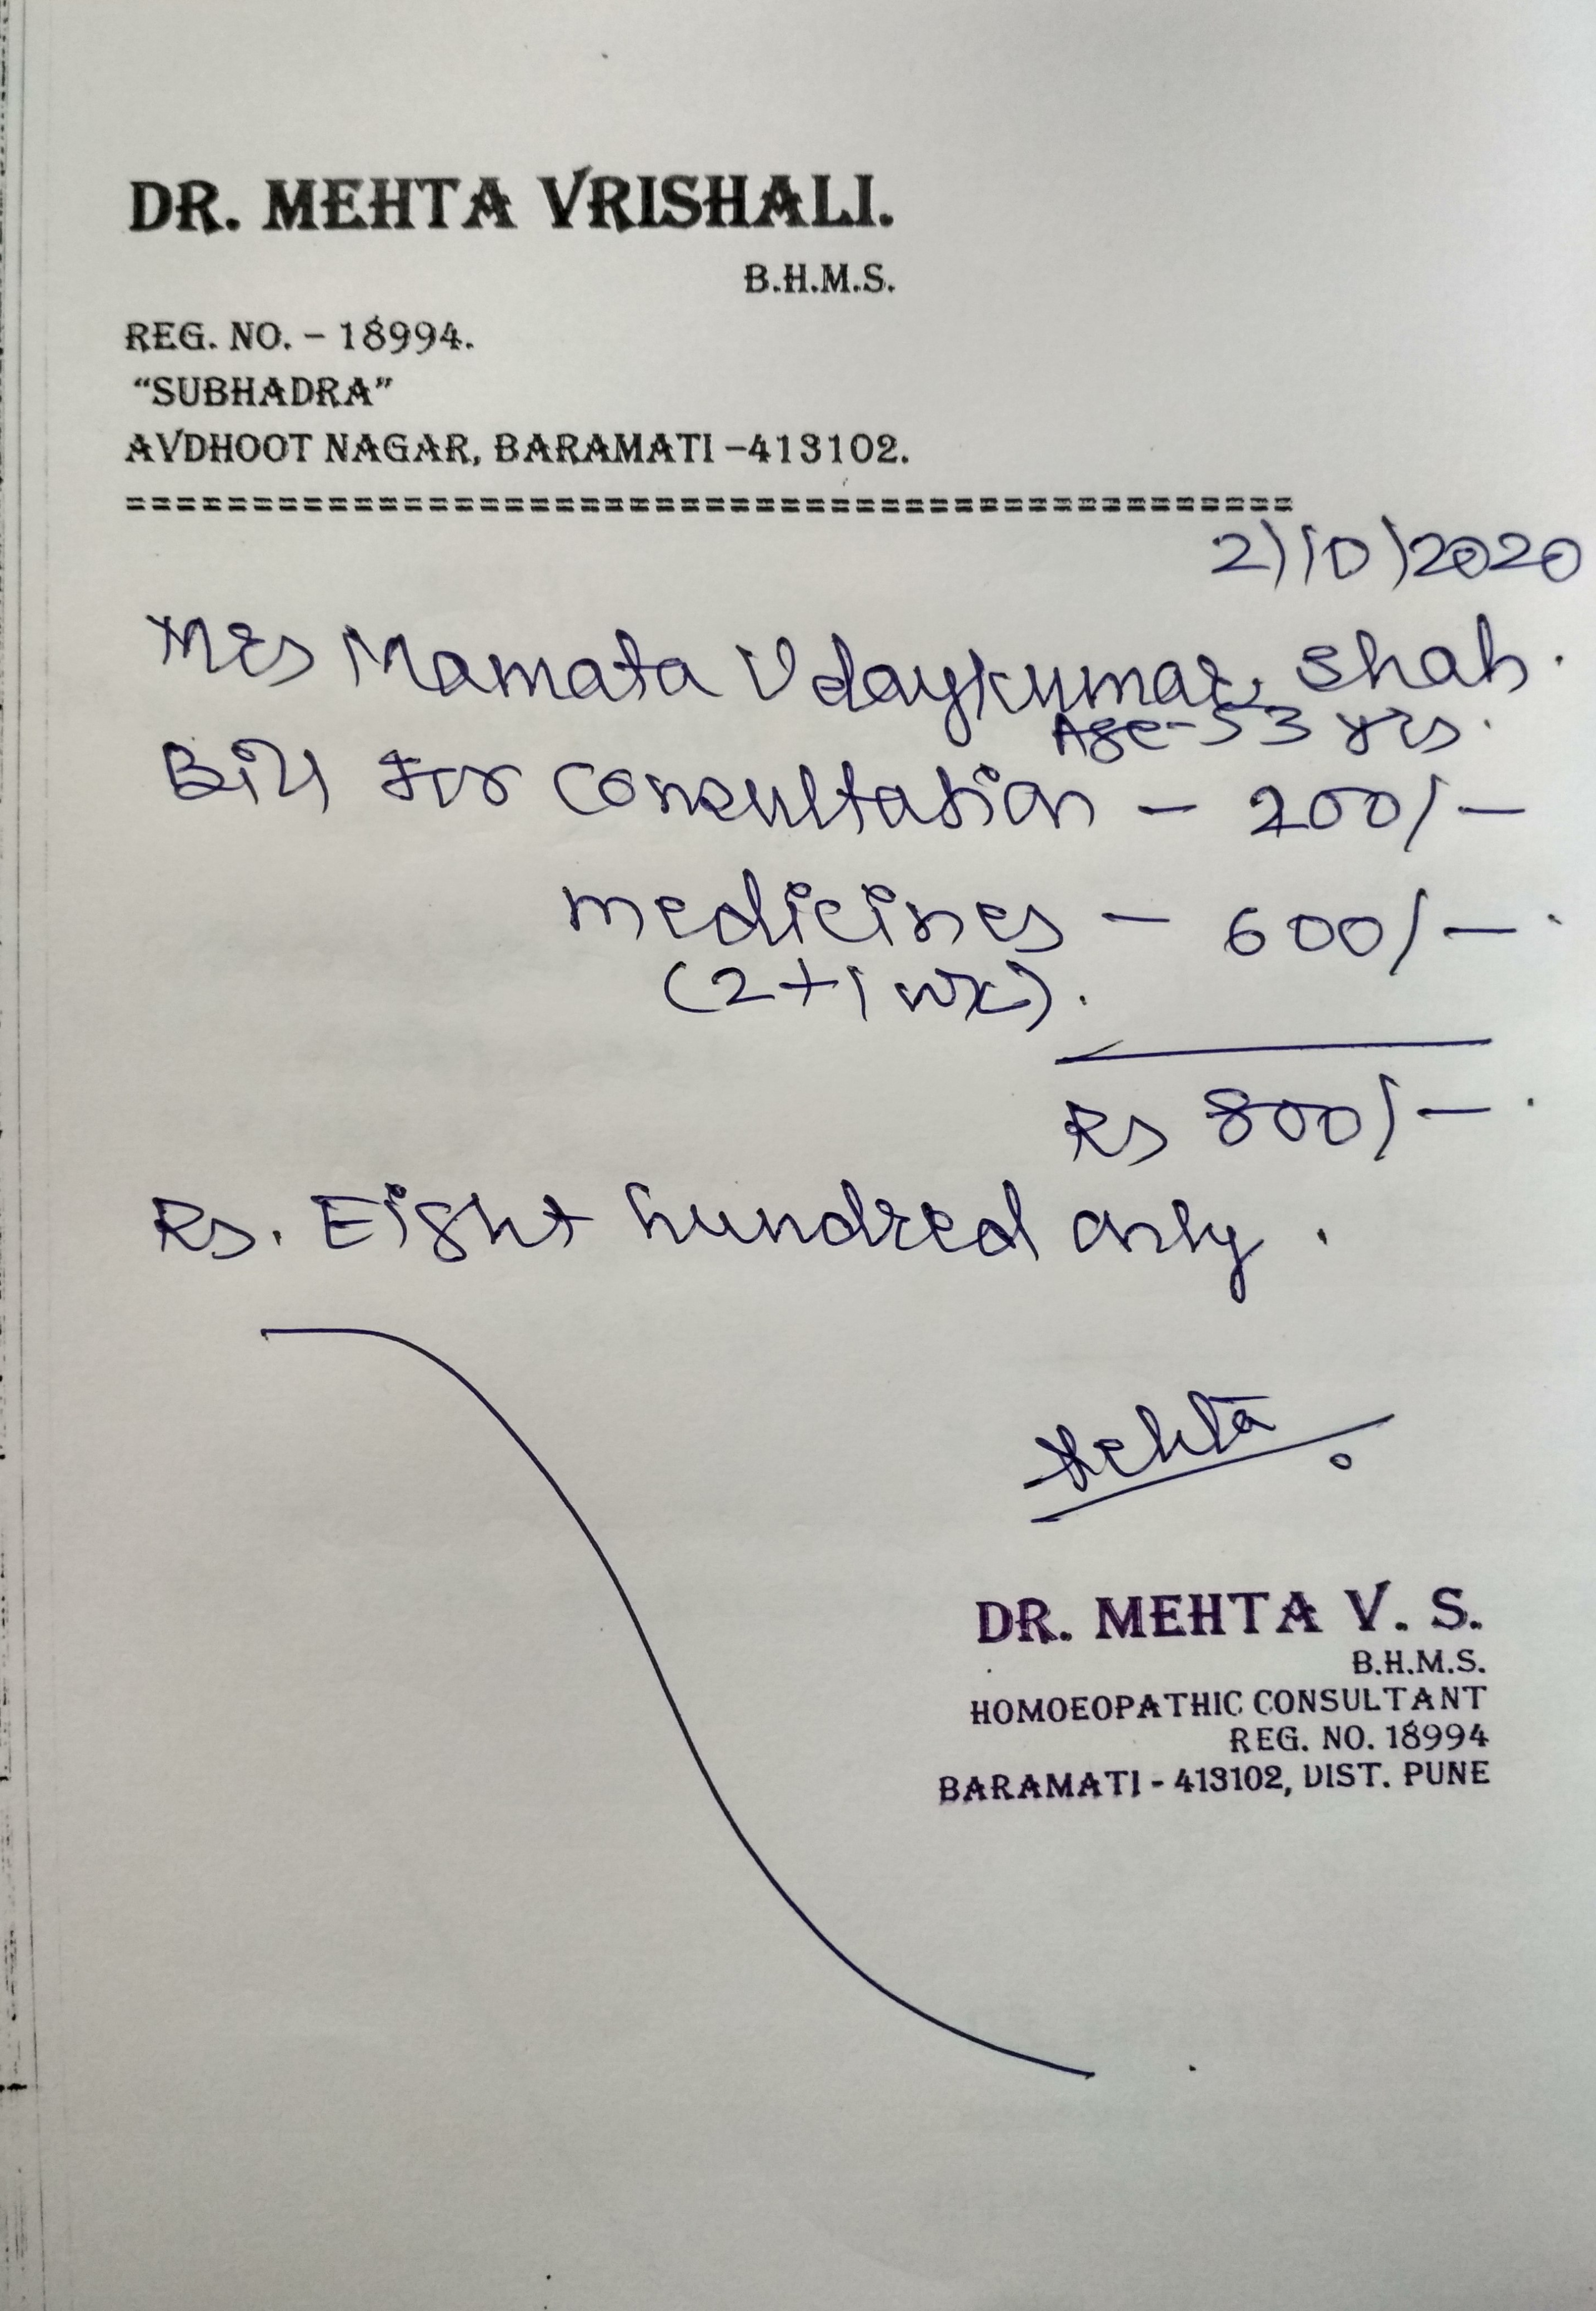 DR. MEHTA VRISHALI.
B.H.M.S.
REG. NO. – 18994.
“SUBHADRA”
AVDHOOT NAGAR, BARAMATI –413102.
===============================================
2/10/2020
Mrs Mamata Udaykumar Shah.
Age-53 yrs.
Bill for consultation – 200/–
medicines – 600/–.
(2+1 wk).
Rs 800/–.
Rs. Eight hundred only.
Mehta
DR. MEHTA V. S.
B.H.M.S.
HOMOEOPATHIC CONSULTANT
REG. NO. 18994
BARAMATI - 413102, DIST. PUNE